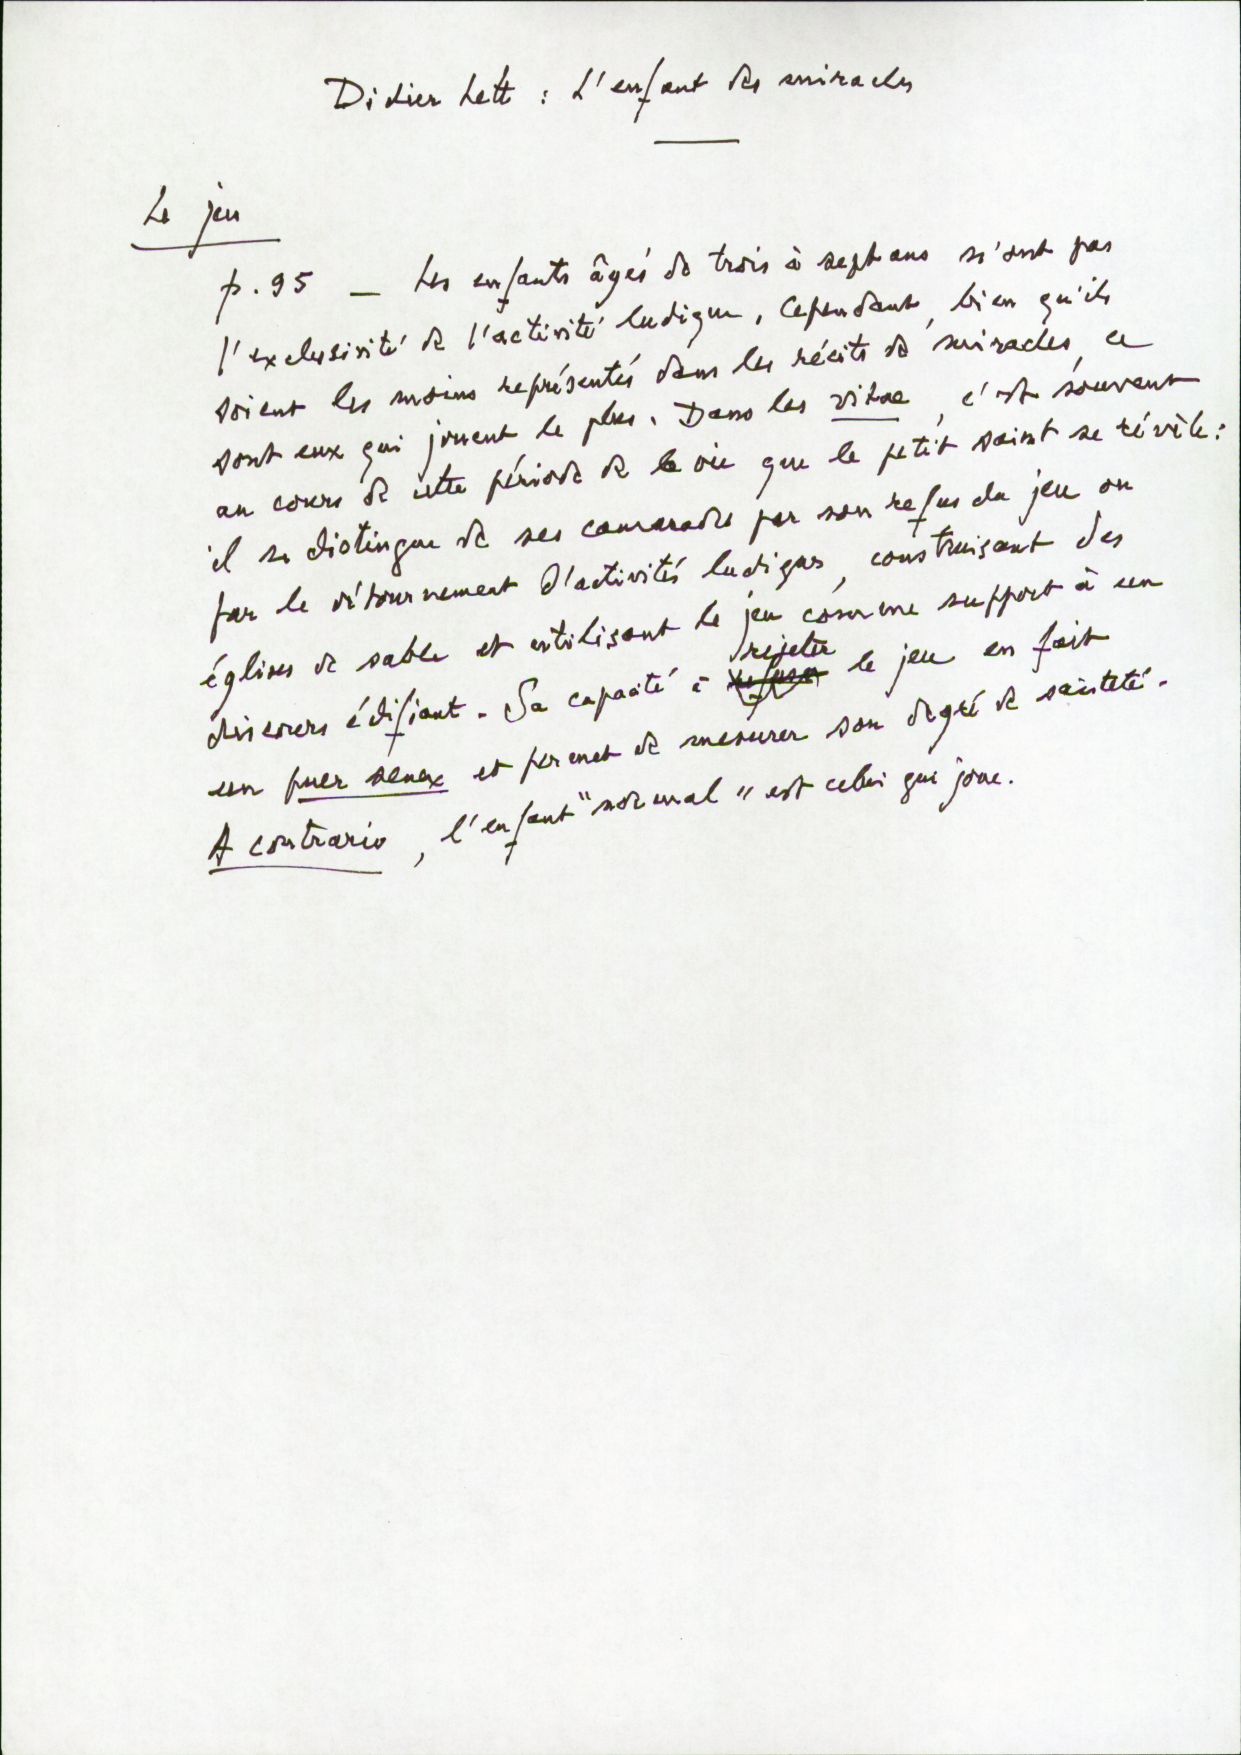 Didier Lett : L'enfant des miracles
Le jeu
p. 95 — Les enfants âgés de trois à sept ans n'ont pas
l'exclusivité de l'activité ludique. Cependant, bien qu'ils
soient les moins représentés dans les récits de miracles, ce
sont eux qui jouent le plus. Dans les vitae, c'est souvent
au cours de cette période de la vie que le petit saint se révèle :
il se distingue de ses camarades par son refus du jeu ou
par le détournement d'activités ludiques, construisant des
églises de sable et utilisant le jeu comme support à un
discours édifiant. Sa capacité à refuser rejeter le jeu en fait
un puer senex et permet de mesurer son degré de sainteté.
A contrario, l'enfant "normal" est celui qui joue.